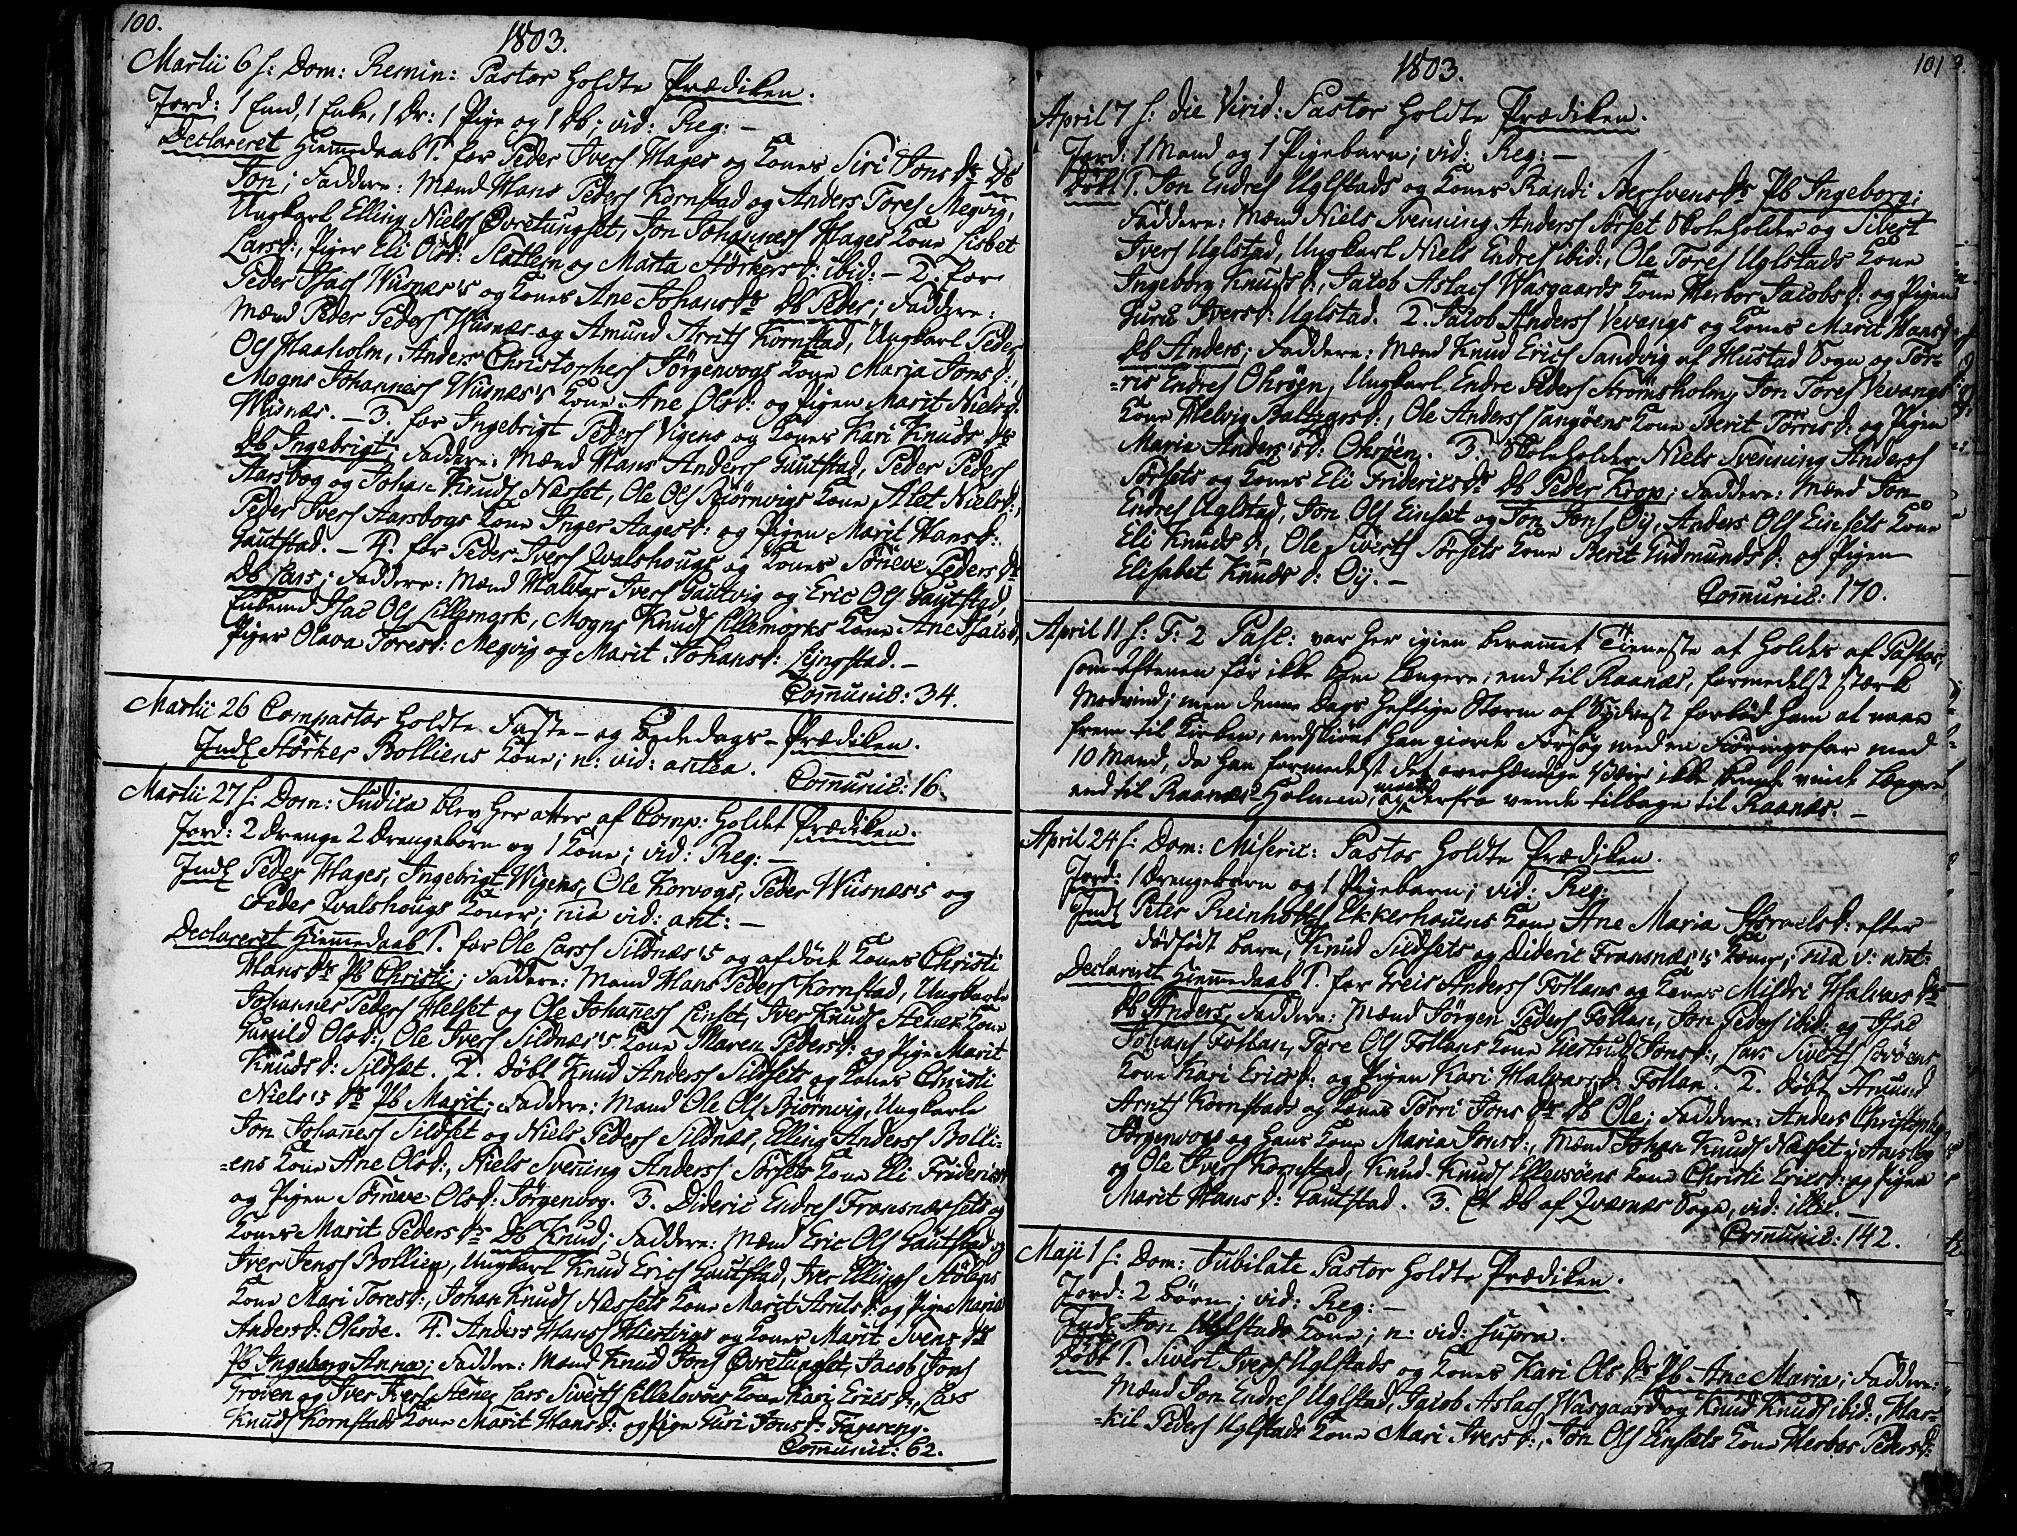 100.
1803.
Martii 6 h: Dom: Remin: Pastor holdte Prædiken.
Jord: 1 Emd, 1 Enke, 1 Dr: 1 Pige og 1 Db; vid: Reg: –
Declareret Hiemmedaab 1. for Peder Ivers Hages og Kones Siri Jons Dr Db
Jon; Faddere: Mænd Hans Peders Kornstad og Anders Tores Megvig,
Ungkarl Elling Niels Øvretungset, Jon Johannes Hages Kone Lisbet
Lars d:, Piger Eli Ols d: Slatlem og Marta Størkers d: ibid: – 2. for
Peder Isacs Wisnæs's og Kones Ane Johans Dr Db Peder; Faddere:
Mænd Peder Peders Wisnæs og Amund Arnts Kornstad, Ungkarl Peder
Ols Maaholm, Anders Christophers Jørgenvogs Kone Maria Jons d:,
Mogns Johannes Wisnæs's Kone Ane Ols d: og Pigen Marit Niels d:
Wisnæs. – 3. for Ingebrigt Peders Vigens og Kones Kari Knuds Dr
Db Ingebrigt; Faddere: Mænd Hans Anders Gautstad, Peder Peders
Aarsbog og Johan Knuds Næsset, Ole Ols Biørnvigs Kone Alet Niels d:,
Peder Ivers Aarsbogs Kone Inger Aages d: og Pigen Marit Hans d:
Gautstad. – 4. for Peder Ivers Qvalshougs og Kones Søneve Peders Dr
Db Lars; Faddere: Mænd Halvor Ivers Gautvig og Eric Ols Gautstad,
Enkemd Isac Ols Lillemork, Mogns Knuds Lillemorks Kone Ane Isacs d:,
Piger Olava Tores d: Megvig og Marit Johans d: Lyngstad. –
Comunic: 34.
Martii 26 Compastor holdte Faste- og Bededags-Prædiken.
Indl Størker Bolliens Kone; n: vid: antea.
Comunic: 16.
Martii 27 h: Dom: Judica blev her atter af Comp: holdet Prædiken.
Jord: 2 Drenge 2 Drengebørn og 1 Kone; vid: Reg: –
Indl Peder Hages, Ingebrigt Wigens, Ole Korvogs, Peder Wisnæs's og
Peder Qvalshougs Koner; nia vid: ant: –
Declareret Hiemmedaab 1. for Ole Lars Sildnæs's og afdöde Kones Christi
Hans Dr Pb Christi; Faddere: Mænd Hans Peders Kornstad, Ungkarle
Johannes Peders Helset og Ole Johannes Linset, Iver Knuds Stenes Kone
Gunild Ols d:, Ole Ivers Sildnæs's Kone Maren Peders d: og Pige Marit
Knuds d: Sildset. 2. Döbt Knud Anders Sildsets og Kones Christi
Niels's Dr Pb Marit; Faddere: Mænd Ole Ols Biörnvig, Ungkarle
Jon Johannes Sildset og Niels Peders Sildnæs, Elling Anders Bolli-
ens Kone Ane Ols d:, Niels Svenning Anders Sørsets Kone Eli Frideries d:
og Pigen Sønneve Ols d: Jørgenvog. 3. Dideric Endres Fransnæssets og
Kones Marit Peders Dr Db Knud; Faddere: Mænd Eric Ols Gautstad og
Iver Jens Bollien, Ungkarl Knud Erics Gautstad, Iver Ellings Stölens
Kone Mari Tores d:, Johan Knuds Næssets Kone Marit Arnts d: og Pige Maria
Anders d: Ohröe. 4. Anders Hans Hiertvigs og Kones Marit Svens Dr
Pb Ingeborg Anna; Faddere: Mænd Knud Jons Øvretungset, Jacob Jons
Groven og Iver Ivers Stene, Lars Siverts Lilleløvöes Kone Kari Erics d:, Lars
Knuds Kornstads Kone Marit Hans d: og Pige Guri Jons d: Fagereng.
Comunic: 62.
1803.
101
April 7 h: die Virid: Pastor holdte Prædiken.
Jord: 1 Mand og 1 Pigebarn; vid: Reg: –
Döbt 1. Jon Endres Uglstads og Kones Randi Bersvens Dr Pb Ingeborg;
Faddere: Mænd Niels Svenning Anders Sørset Skoleholder og Sivert
Ivers Uglstad, Ungkarl Niels Endres ibid:, Ole Tores Uglstads Kone
Ingeborg Knuds d:, Jacob Aslacs Wasgaards Kone Herbor Jacobs d: og Pigen
Guru Ivers d: Uglstad. 2. Jacob Anders Vevangs og Kones Marit Hans d:
Db Anders; Faddere: Mænd Knud Erics Sandvig af Hustad Sogn og Tör-
ris Endres Ohröen, Ungkarl Endre Peders Strömsholm, Jon Tores Vevangs
Kone Helvig Baltzers d:, Ole Anders Langöens Kone Berit Törris d: og Pigen
Maria Anders's d: Ohröen. 3. Skoleholder Niels Svenning Anders
Sørsets og Kones Eli Friderics Dr Db Peder Krop; Faddere: Mænd Jon
Endres Uglstad, Jon Ols Einset og Jon Jons Öy, Anders Ols Einsets Kone
Eli Knuds d:, Ole Siverts Sørsets Kone Berit Gudmunds d: og Pigen
Elisabet Knuds d: Öy. –
Comunic: 170.
April 11 h: F: 2 Pasc: var her igien berammet Tieneste at holdes af Pastor,
som Aftenen för ikke kom længere, end til Raanæs, formedelst stærk
Modvind; men denne Dags heftige Storm af Sydvest forböd ham at naae
frem til Kirken, endskiönt han giorde Forsög med en Fioringsfar med
10 Mand, da han formedelst det overhændige Væir ikke kunde vinde længere
end til Raanæs-Holmen, og maatte derfra vende tilbage til Raanæs. –
April 24 h: Dom: Miseric: Pastor holdte Prædiken.
Jord: 1 Drengebarn og 1 Pigebarn; vid: Reg:
Indl Peter Reinholts Ekkerhauens Kone Ane Maria Ifvaels d: efter
dödfödt Barn, Knud Sildsets og Diderit Fransnæs's Koner; nia v: ant:
Declareret Hiemmedaab 1. for Greis Anders Follans og Kones Mildri Halvors Dr
Db Anders; Faddere: Mænd Jørgen Peders Follan, Jon Peders ibid: og Isac
Johans Follan, Tore Ols Follans Kone Giertrud Jons d:, Lars Siverts Lövöens
Kone Kari Erics d: og Pigen Kari Halvors d: Follan. 2. Döbt Amund
Arnts Kornstads og Kones Törri Jons Dr Db Ole; Faddere: Anders Christophers
Jørgenvogs og hans Kone Maria Jons d:, Mænd Johan Knuds Næsset i Aarsbog
og Ole Ivers Kornstad, Knud Knuds Ellevsöens Kone Christi Erics d: og Pigen
Marit Hans d: Gautstad. 3. Et Db af Qværnæs Sogn, vid: illic. –
Comunic: 142.
Maji 1 h: Dom: Jubilate Pastor holdte Prædiken.
Jord: 2 Börn; vid: Reg: –
Indl Jon Uglstads Kone; n: vid: supra.
Döbt 1. Sivert Ivers Uglstads og Kones Kari Ols Dr Pb Ane Maria; Faddere:
Mænd Jon Endres Uglstad, Jacob Aslacs Wasgaard og Knud Knuds ibid:, Har-
kil Peders Uglstads Kone Mari Ivers d:, Jon Ols Einsets Kone Herbor Peders d: